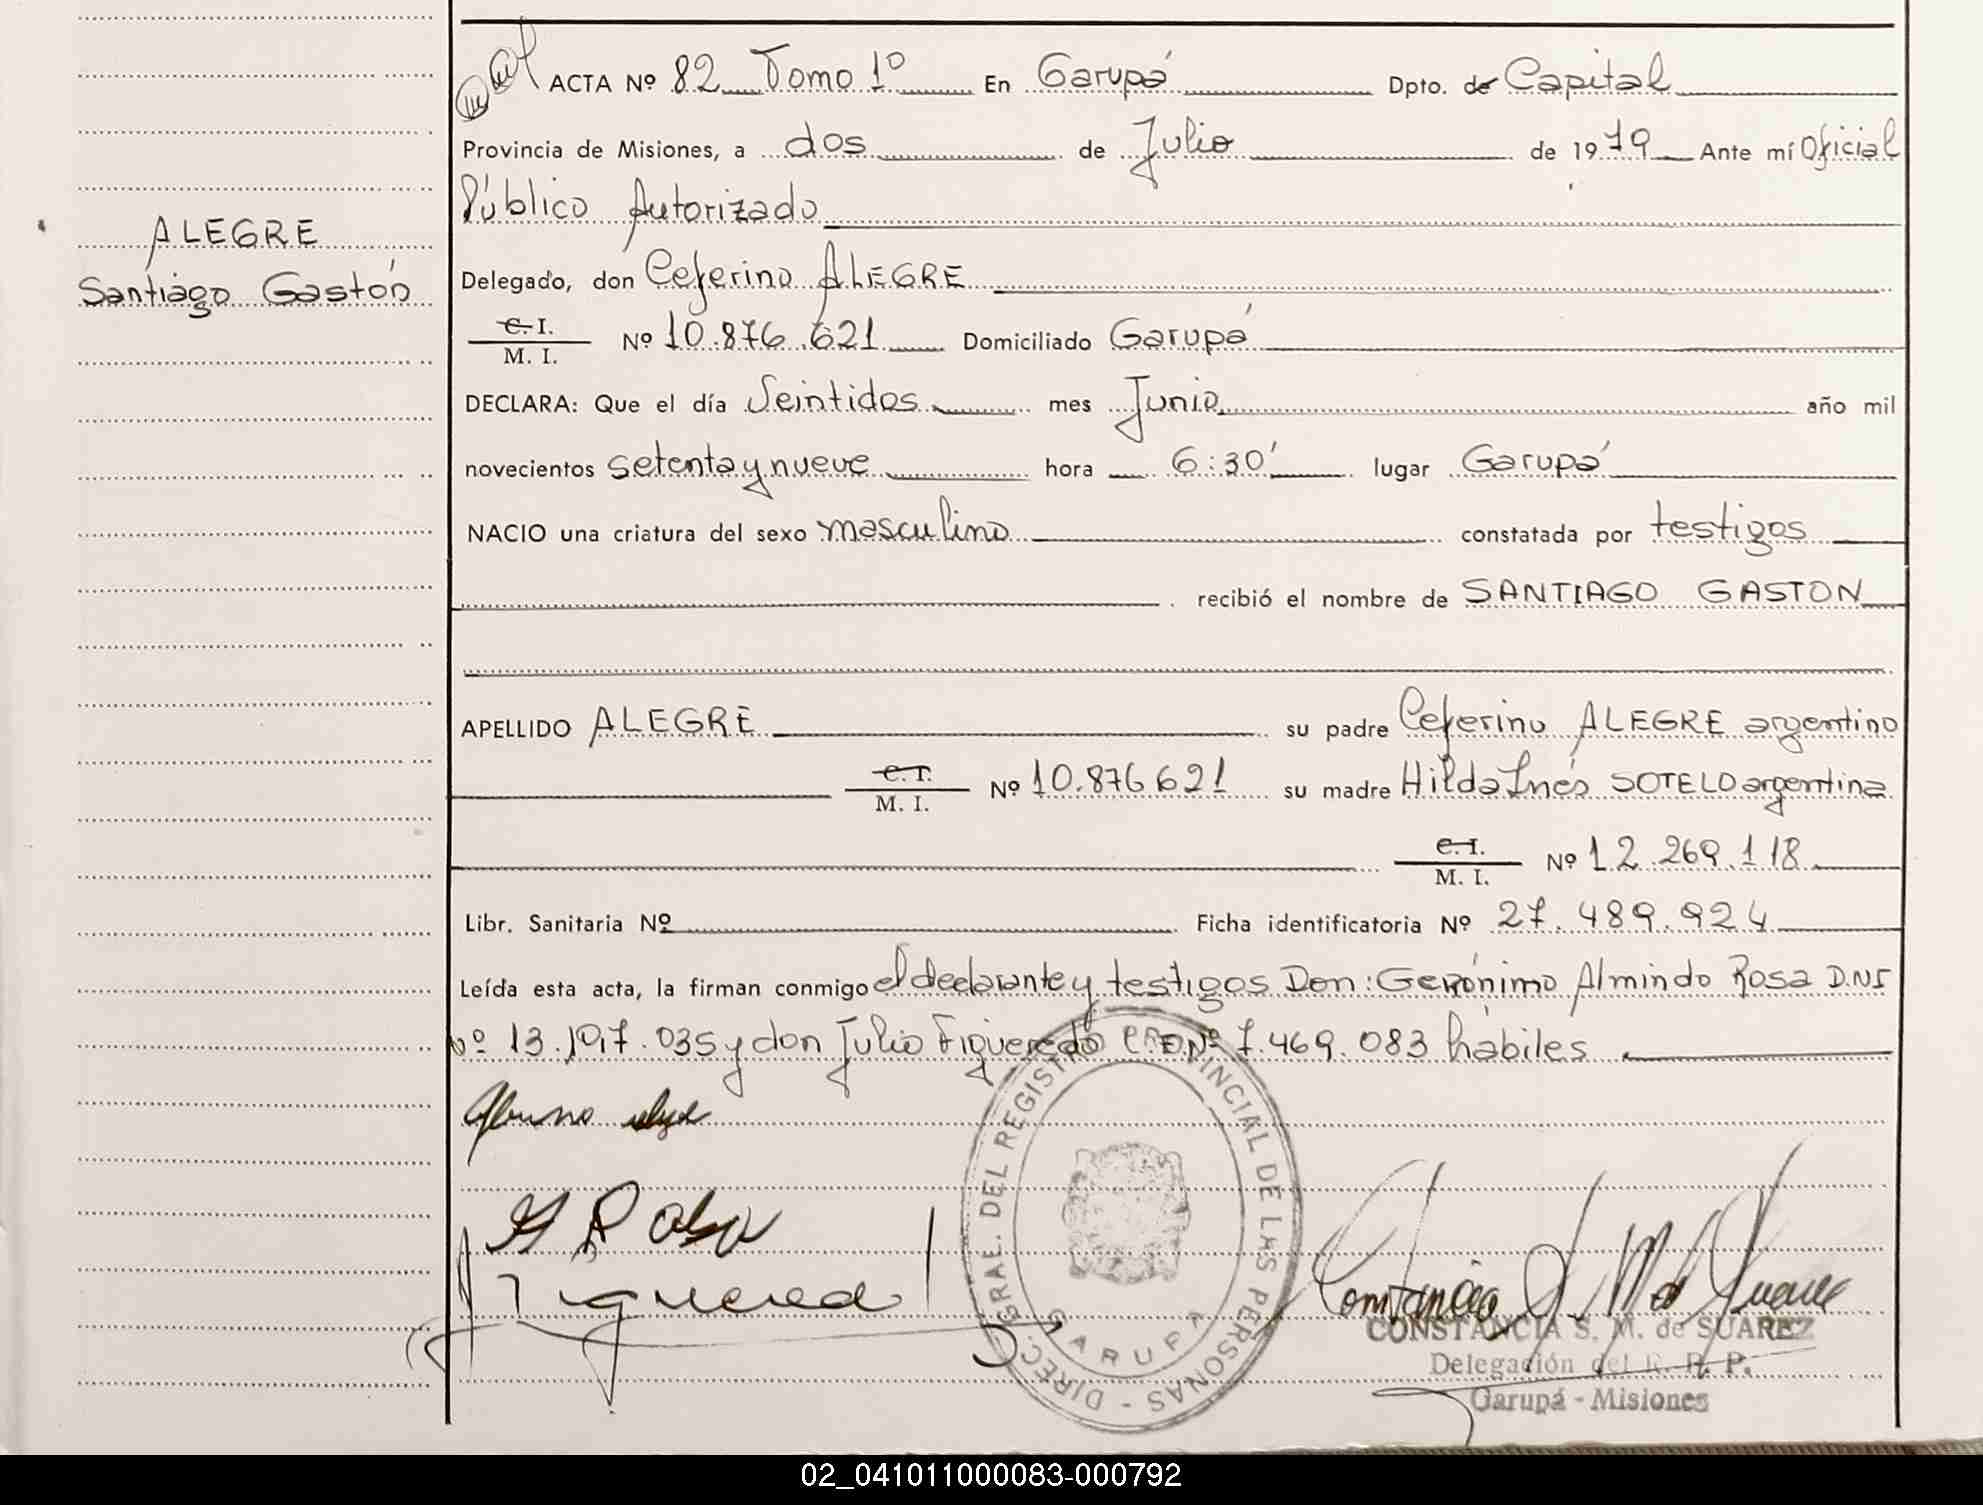 ACTA Nº 82 Tomo 1º En Garupá Dpto. de Capital
Provincia de Misiones, a dos de Julio de 1979 Ante mí Oficial
Público Autorizado
ALEGRE
Santiago Gastón
Delegado, don Ceferino ALEGRE
C. I.
M. I.
Nº 10.876.621 Domiciliado Garupá
DECLARA: Que el día Veintidos mes Junio año mil
novecientos setenta y nueve hora 6:30' lugar Garupá
NACIO una criatura del sexo masculino constatada por testigos
recibió el nombre de SANTIAGO GASTON
APELLIDO ALEGRE su padre Ceferino ALEGRE argentino
C. I.
M. I.
Nº 10.876621 su madre Hilda Inés SOTELO argentina
C. I.
M. I.
Nº 12.269.118
Libr. Sanitaria Nº Ficha identificatoria Nº 27.489.924
Leída esta acta, la firman conmigo el declarante y testigos Don: Gerónimo Almindo Rosa D.N.I
Nº 13.197.035 y don Julio Figueredo Nº 7.469.083 hábiles
DIRECC. GRAE. DEL REGISTRO PROVINCIAL DE LAS PERSONAS -
GARUPA
Figueredo
Constancia S. M. de Suarez
CONSTANCIA S. M. de SUAREZ
Delegación del R. P. P.
Garupá - Misiones
02_041011000083-000792